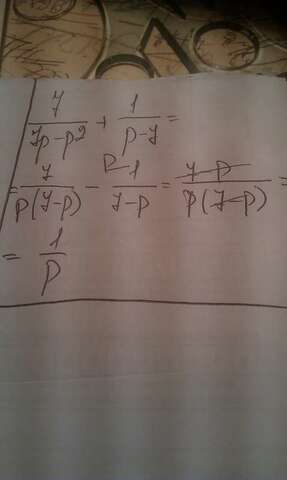 7/(7p-p²) + 1/(p-7) =
= 7/(p(7-p)) - p⌞1/(7-p) = (7-p)/(p(7-p)) =
= 1/p